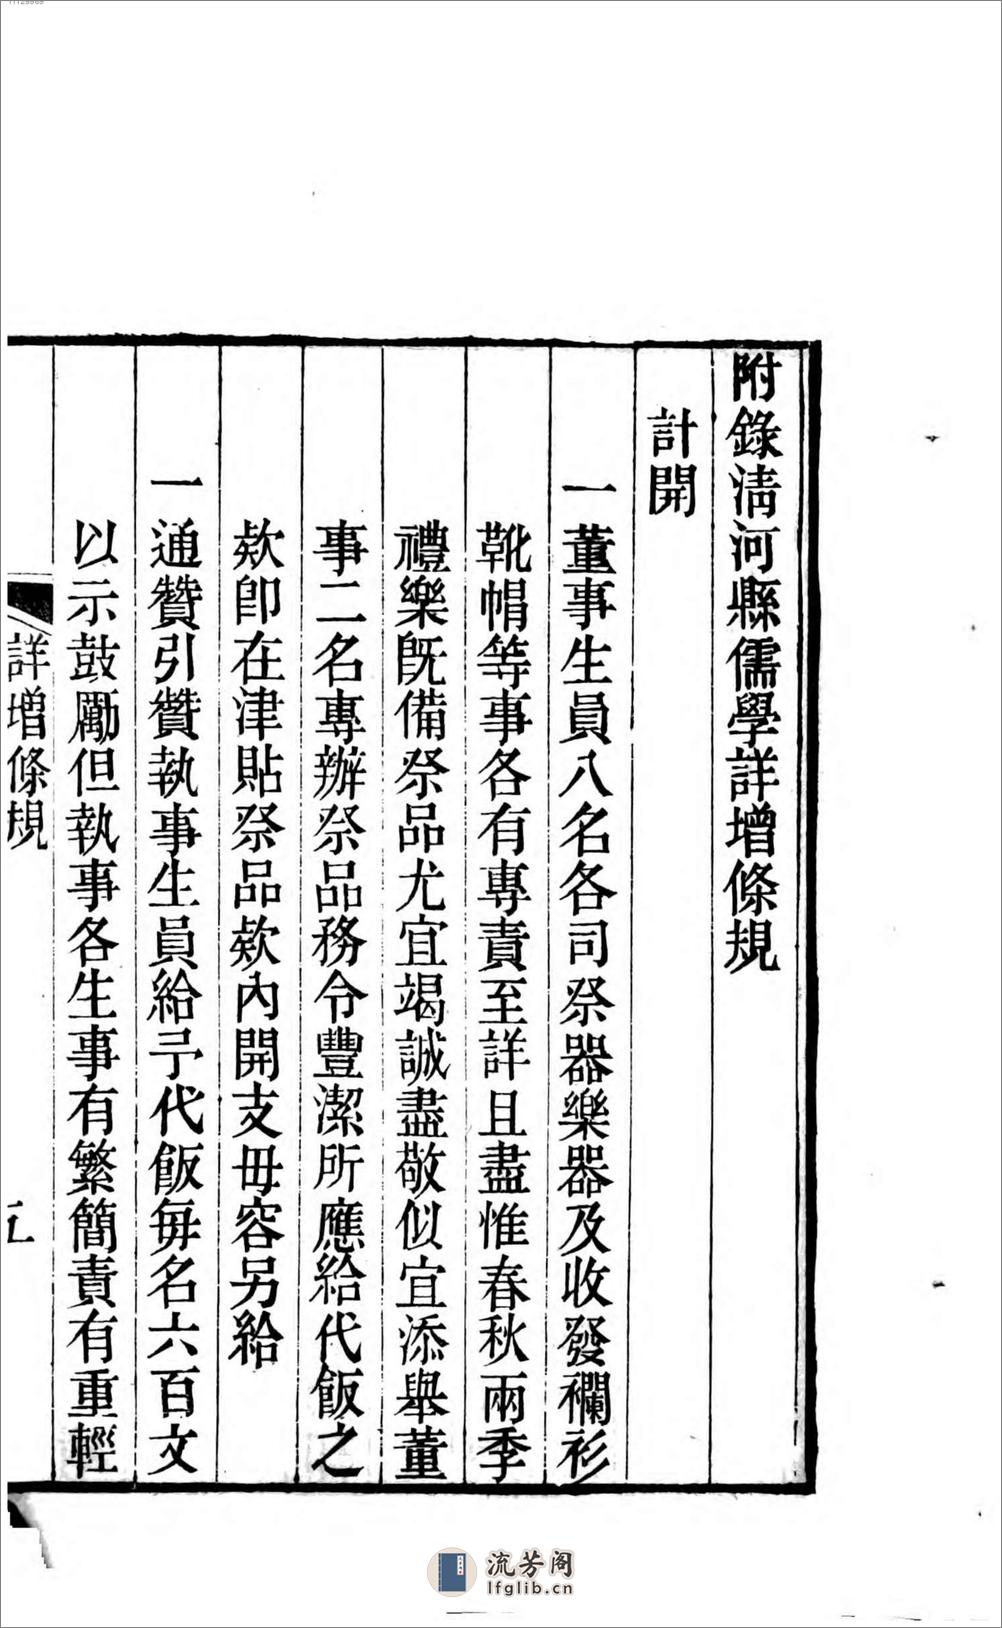 11129969
附錄淸河縣儒學詳增條規
計開
一董事生員八名各司祭器樂器及收發襴衫
靴帽等事各有專責至詳且盡惟春秋兩季
禮樂旣備祭品尤宜竭誠盡敬似宜添舉董
事二名專辦祭品務令豐潔所應給代飯之
欵卽在津貼祭品欵內開支毋容另給
一通贊引贊執事生員給予代飯每名六百文
以示鼓勵但執事各生事有繁簡責有重輕
詳增條規
流芳阁
lfglib.cn